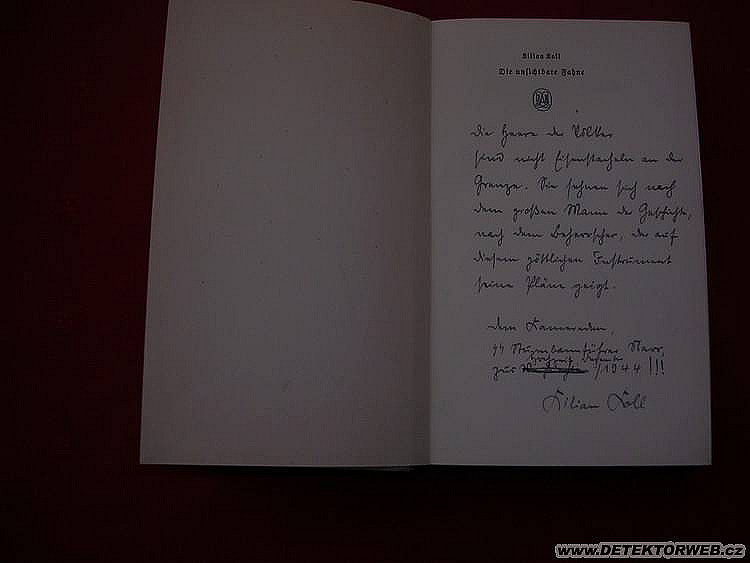 Kilian Koll
Die unsichtbare Fahne
Die Heere der Völker
sind nicht Eisenstacheln an der
Grenze. Sie sehnen sich nach
dem großen Mann der Geschichte,
nach dem Beherrscher, der auf
diesem göttlichen Instrument
seine Pläne geigt.
dem Kameraden,
SS Sturmbannführer
zur Hochzeit /1944 !!!
Kilian Koll
www.DETEKTORWEB.cz